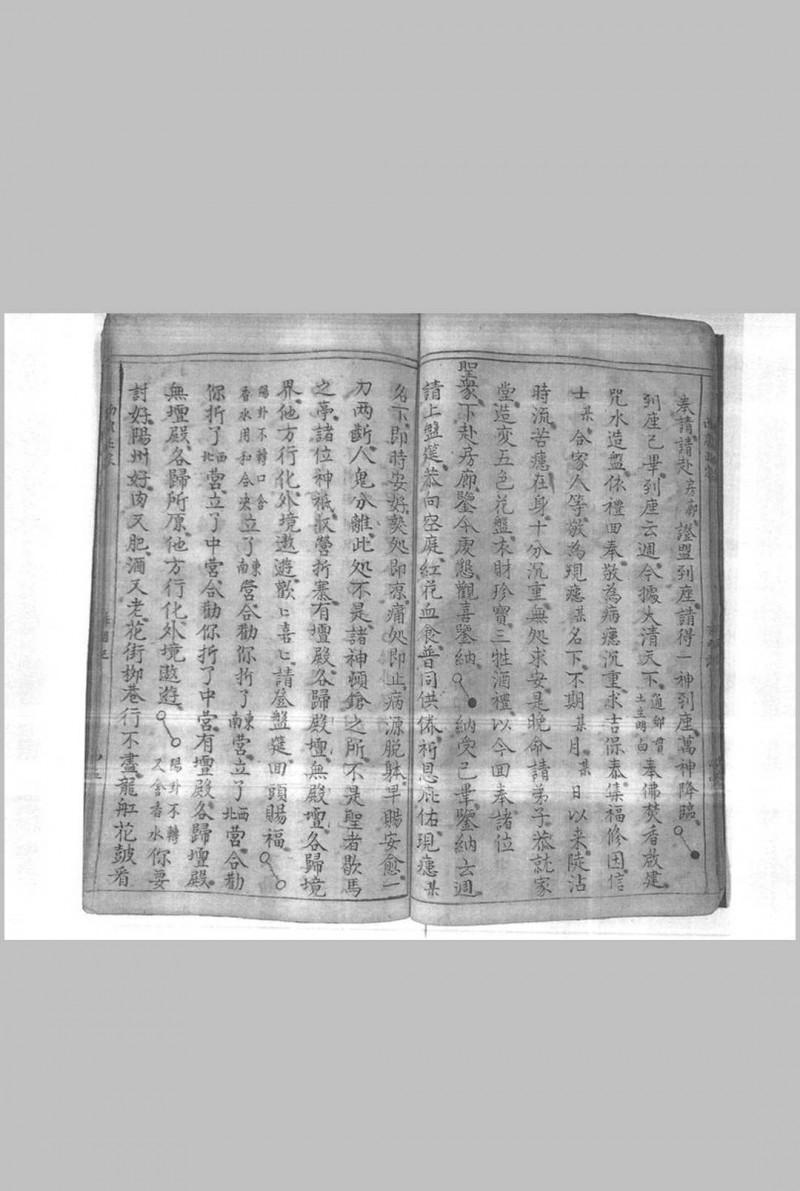 奉請請赴房廊證盟到座請得一神到座萬神降臨
到座已畢到座云週今據大清天下道都貫土主明白奉佛焚香啟建
咒水造盤依禮回奉敬為病瘧沉重求吉保泰集福修因信
士某合家人等敬為現瘧某名下不期某月某日以来陡沾
時流苦瘧在身十分沉重無処求安是晚命請弟子恭就家
堂造変五色花盤木財珍寶三牲酒禮以今回奉諸位
聖衆下赴房廊鑒今虔懇觀喜鑒納納受已畢鑒納云週
請上盤筵恭向空庭紅花血食普同供俻祈恩庇佑現瘧某
名下即時安好熱処即凉痛処即止病源脱躰早賜安愈一
刀两斷人鬼分離此処不是諸神頓鎗之所不是聖者歇馬
之亭諸位神祇収營折寨有壇殿各歸殿壇無殿壇各歸境
界他方行化外境遨遊歡匕喜匕請登盤筵回頭賜福
陽卦不轉口含香水用和合央立了東南營合勸你折了東南營立了西北營合勸
你折了西北營立了中宮合勸你折了中宮有壇殿各歸壇殿
無壇殿各歸所原他方行化外境遨遊陽卦不轉又含香水你要
討好陽州好肉又肥酒又老花街柳巷行不盡龍舡花皷看